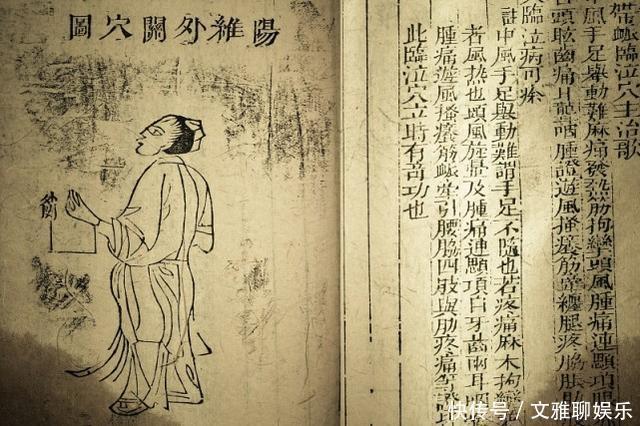 帶䘑臨泣穴主治歌
中風手足舉動難麻痛發熱筋拘攣頭風腫痛連顋項眼
頭眩齒痛耳聾咽腫證遊風搔癢筋牽纏腿疼脇脹肋
臨泣病可痊
註中風手足舉動難謂手足不隨也若疼痛麻木拘攣
者風熱也頭風旋暈及腫痛連顋項目牙齒兩耳咽
腫痛遊風搔癢筋䘑牽引腰脇四肢與肋疼痛等證
此臨泣穴立時有奇功也
陽維外關穴圖
快传号 / 文雅聊娱乐